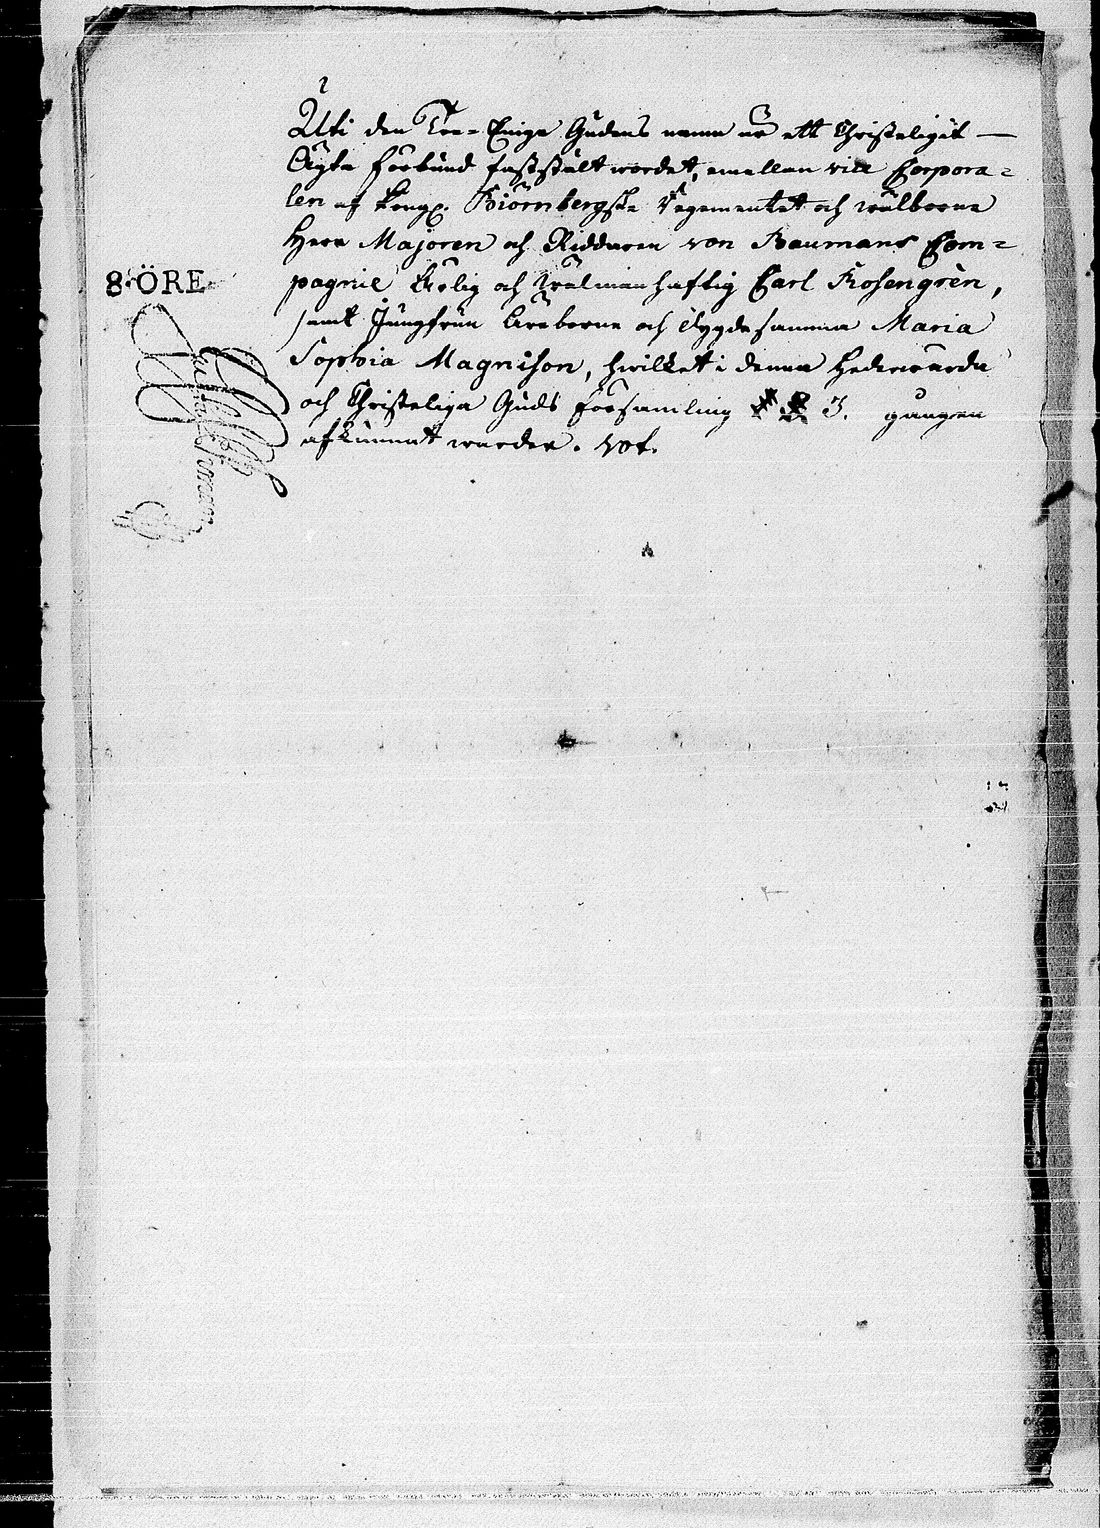 Uti den Tre-Eniga Gudens namn är ett Christeligit —
Ägta förbund faststält wordet, emellan vice Corpora=
len af Kongl. Biörnbergske Regementet och wälborne
Herr Majoren och Riddaren von Baumans Com=
pagnie Ährlig och Wälmanhaftig Carl Rosengrèn,
8·ÖRE
samt Jungfrun Äreborne och dygdesamma Maria
Sophia Magnison, hwilket i denna Hederwärda
och Christeliga Guds församling 3. gången
afkunnat warder.